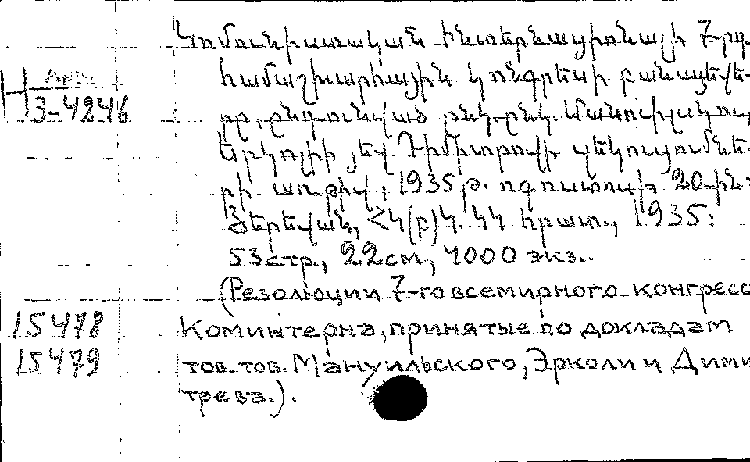 Կոմունիստական Ինտերնացիոնալի 7-րդ
համաշխարհային կոնգրեսի բանաձեվե-
րը, ընդունված ընկ. ընկ. Մանուիլսկու,
Երկոլիի յեվ Դիմիտրովի զեկուցումնե-
րի առթիվ, 1935 թ. ոգոստոսի 20-ին:
Յերեվան, ՀԿ(բ)Կ ԿԿ հրատ., 1935:
53 стр., 22 см, 4000 экз..
(Резолюции 7-го всемирного конгресс
Коминтерна, принятые по докладам
тов. тов. Мануильского, Эрколи и Дими
трева.).
Н
3-4246
15478
15479